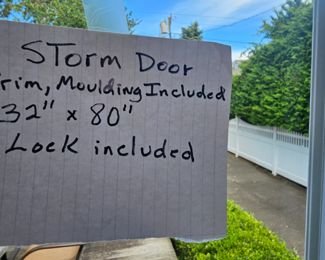 STorm Door
rim, Moulding Included
32" x 80"
Lock included